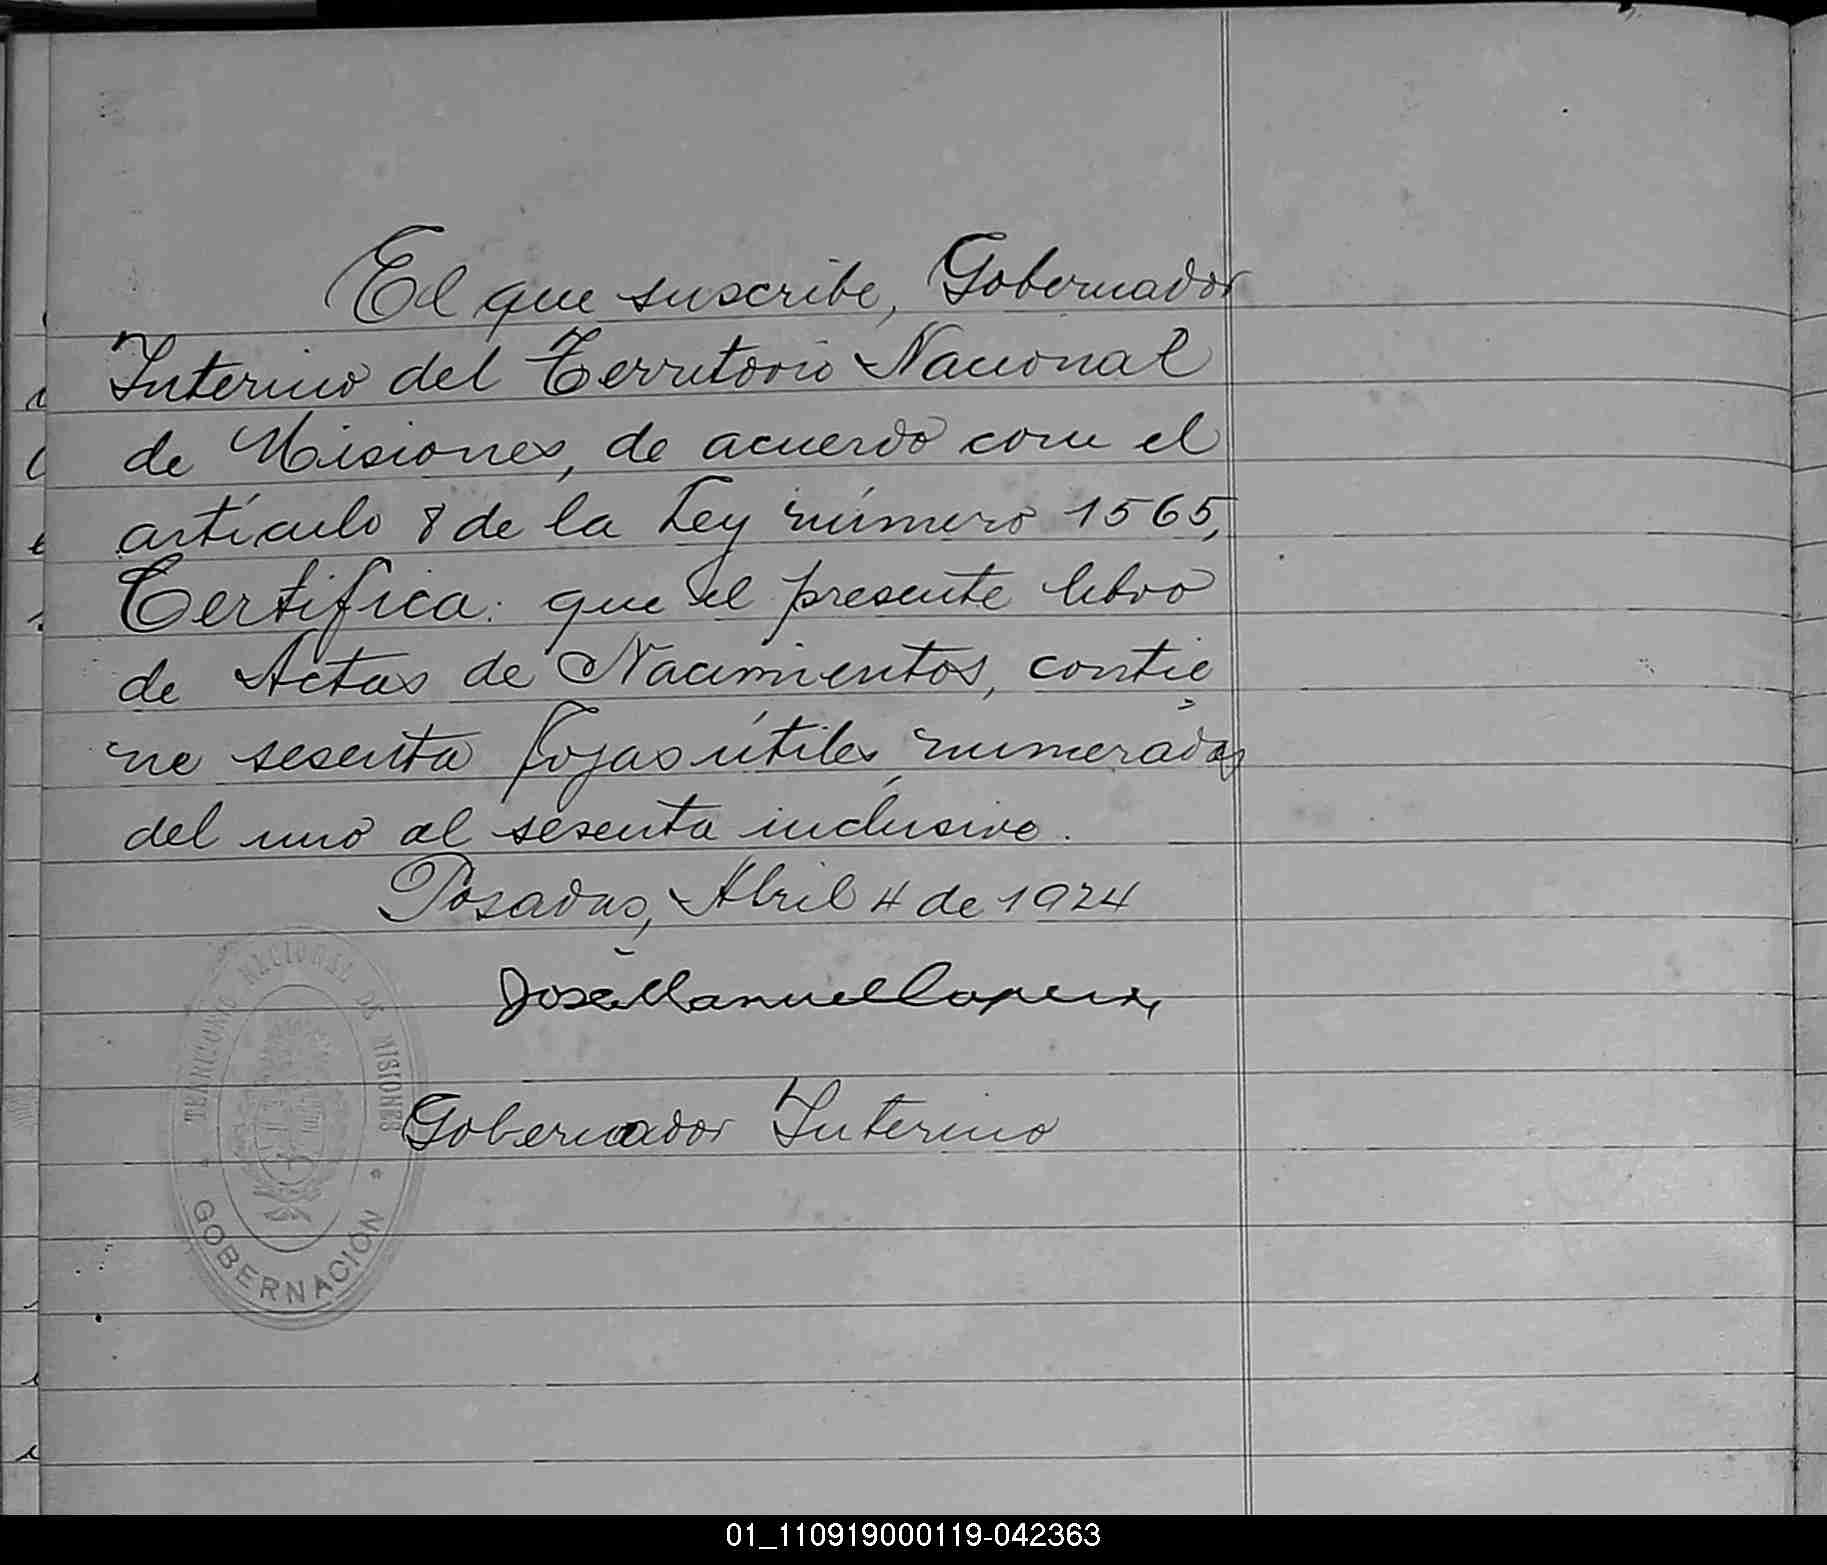 El que suscribe, Gobernador
Interino del Territorio Nacional
de Misiones, de acuerdo con el
artículo 8 de la Ley número 1565,
Certifica: que el presente libro
de Actas de Nacimientos, contie
ne sesenta fojas útiles, numeradas
del uno al sesenta inclusive.
Posadas, Abril 4 de 1924
José Manuel
Gobernador Interino
TERRITORIO NACIONAL DE MISIONES
GOBERNACION
01_110919000119-042363